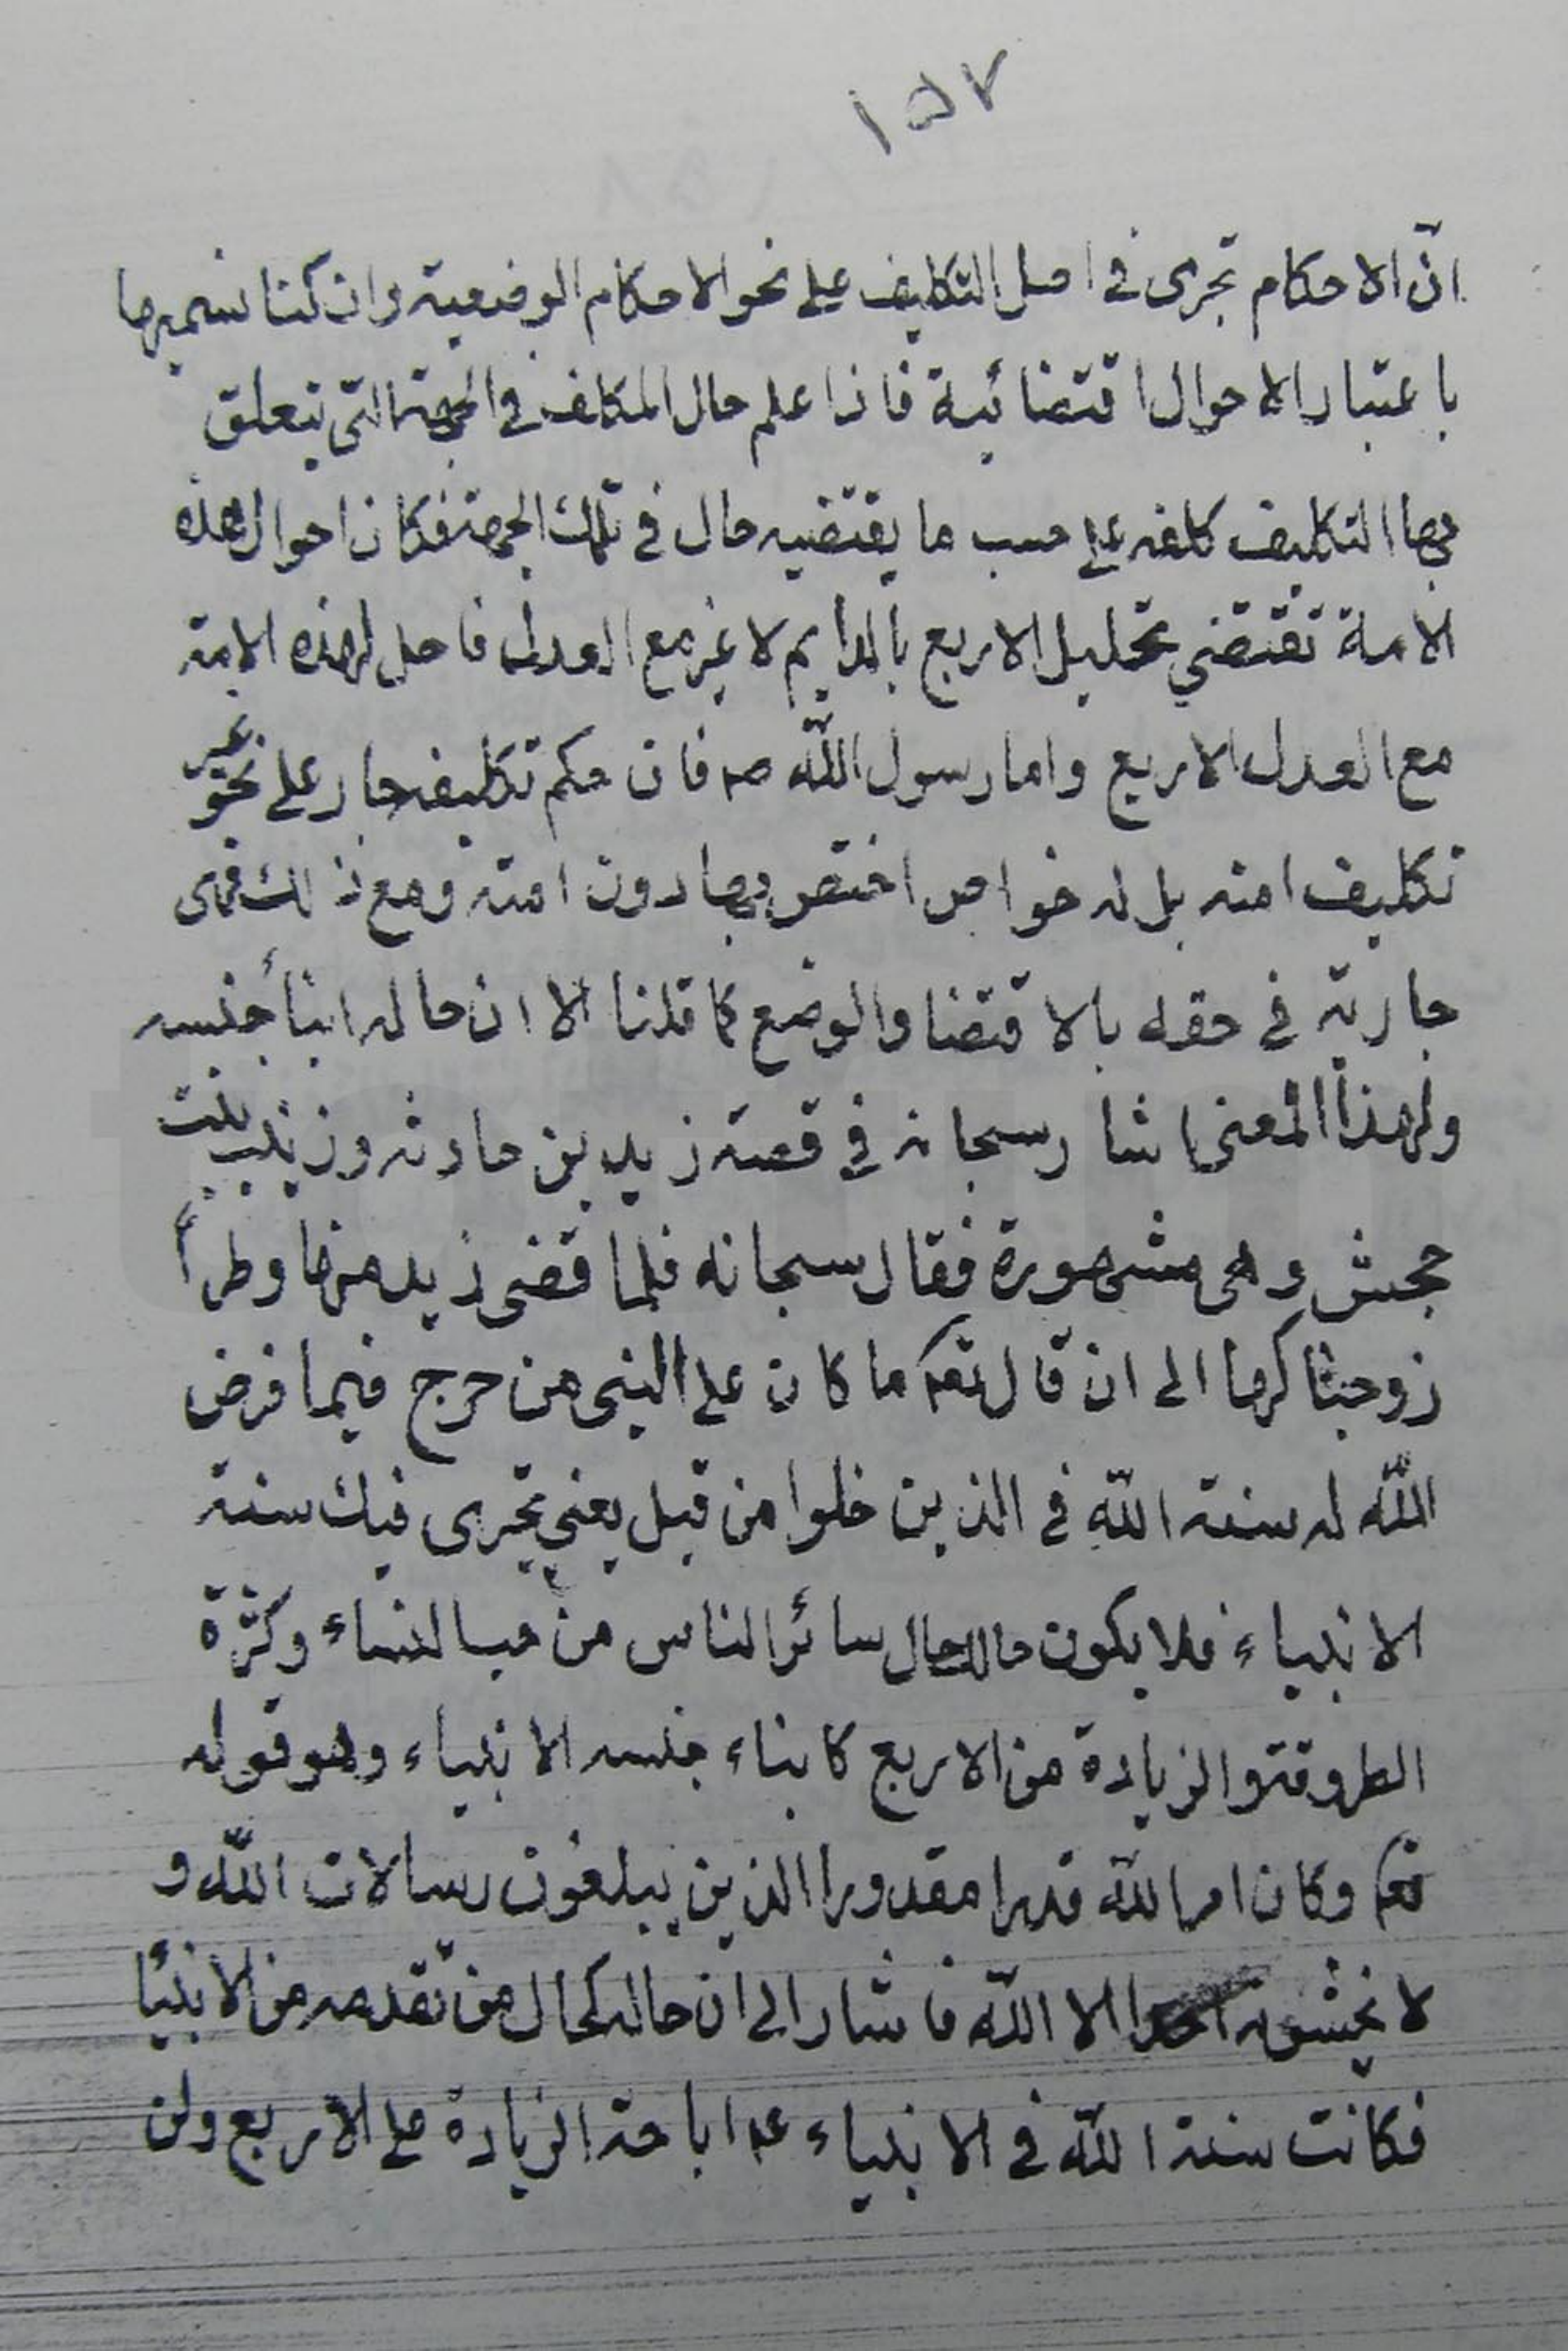 ١٥٧
انّ الاحكام تجرى فى اصل التكليف على نحو الاحكام الوضعية وان كنا نسميها
باعتبار الاحوال اقتضائية فاذا علم حال المكلف فى الجهة التى يتعلق
بها التكليف كلفه على حسب ما يقتضيه حال فى تلك الجهة فكان احوال هذه
الامة تقتضي تحليل الاربع بالدايم لا غير مع العدل فاحل لهذه الامة
مع العدل الاربع واما رسول اللّه صم فان حكم تكليفه جار على نحو غير
تكليف امته بل له خواص اختص بها دون امته ومع ذلك فهى
جارية فى حقه بالاقتضا والوضع كما قلنا الا ان حاله ابنأ جنسه
ولهذا المعنى اشار سبحانه فى قصة زيد بن حارثه وزينب بنت
جحش وهى مشهورة فقال سبحانه فلما قضى زيد منها وطراً
زوجناكها الى ان قال تعم ما كان على النبى من حرج فيما فرض
اللّه له سنة اللّه فى الذين خلوا من قبل يعني تجرى فيك سنة
الانبياء فلا يكون حاله حال سائر الناس من حب النساء وكثرة
الطروقة والزيادة من الاربع كابناء جنسه الانبياء وهو قوله
تعم وكان امر اللّه قدرا مقدورا الذين يبلغون رسالات اللّه و
لا يخشون احدا الا اللّه فاشار الى ان حاله كحال من تقدمه من الانبيأ
فكانت سنة اللّه فى الانبياء عم اباحة الزيادة على الاربع ولن